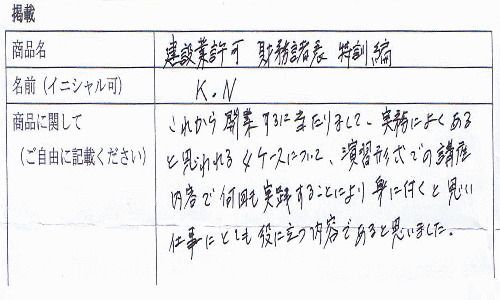 掲載
商品名 建設業許可 財務諸表 特訓編
名前（イニシャル可） K.N
商品に関して これから開業するに当たりまして、実務によくある
（ご自由に記載ください） と思われる4ケースについて、演習形式での講座
内容で何回も実践することにより身に付くと思い
仕事にとても役に立つ内容であると思いました。